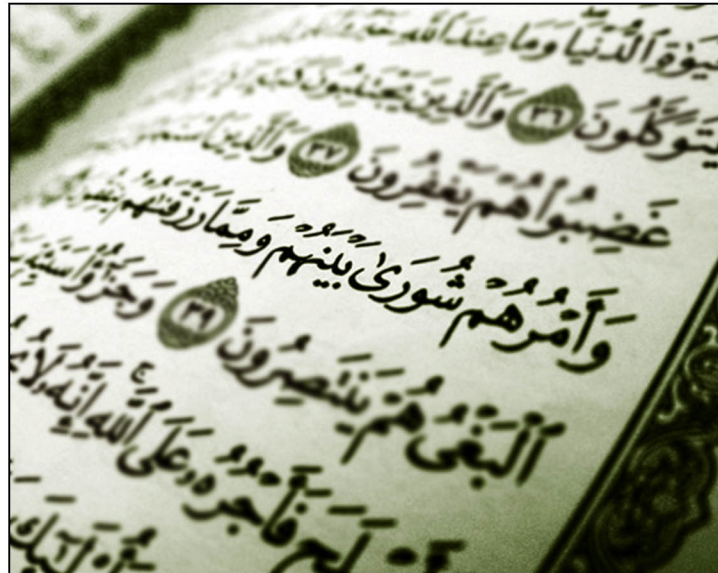 ٱلدُّنۡيَا وَمَا عِندَ ٱللَّهِ
يَتَوَكَّلُونَ ٣٦ وَٱلَّذِينَ يَجۡتَنِبُونَ
غَضِبُواْ هُمۡ يَغۡفِرُونَ ٣٧ وَٱلَّذِينَ
وَأَمۡرُهُمۡ شُورَىٰ بَيۡنَهُمۡ وَمِمَّا رَزَقۡنَٰهُمۡ
ٱلۡبَغۡيُ هُمۡ يَنتَصِرُونَ ٣٩ وَجَزَٰٓؤُاْ
فَأَجۡرُهُۥ عَلَى ٱللَّهِۚ إِنَّهُۥ لَا